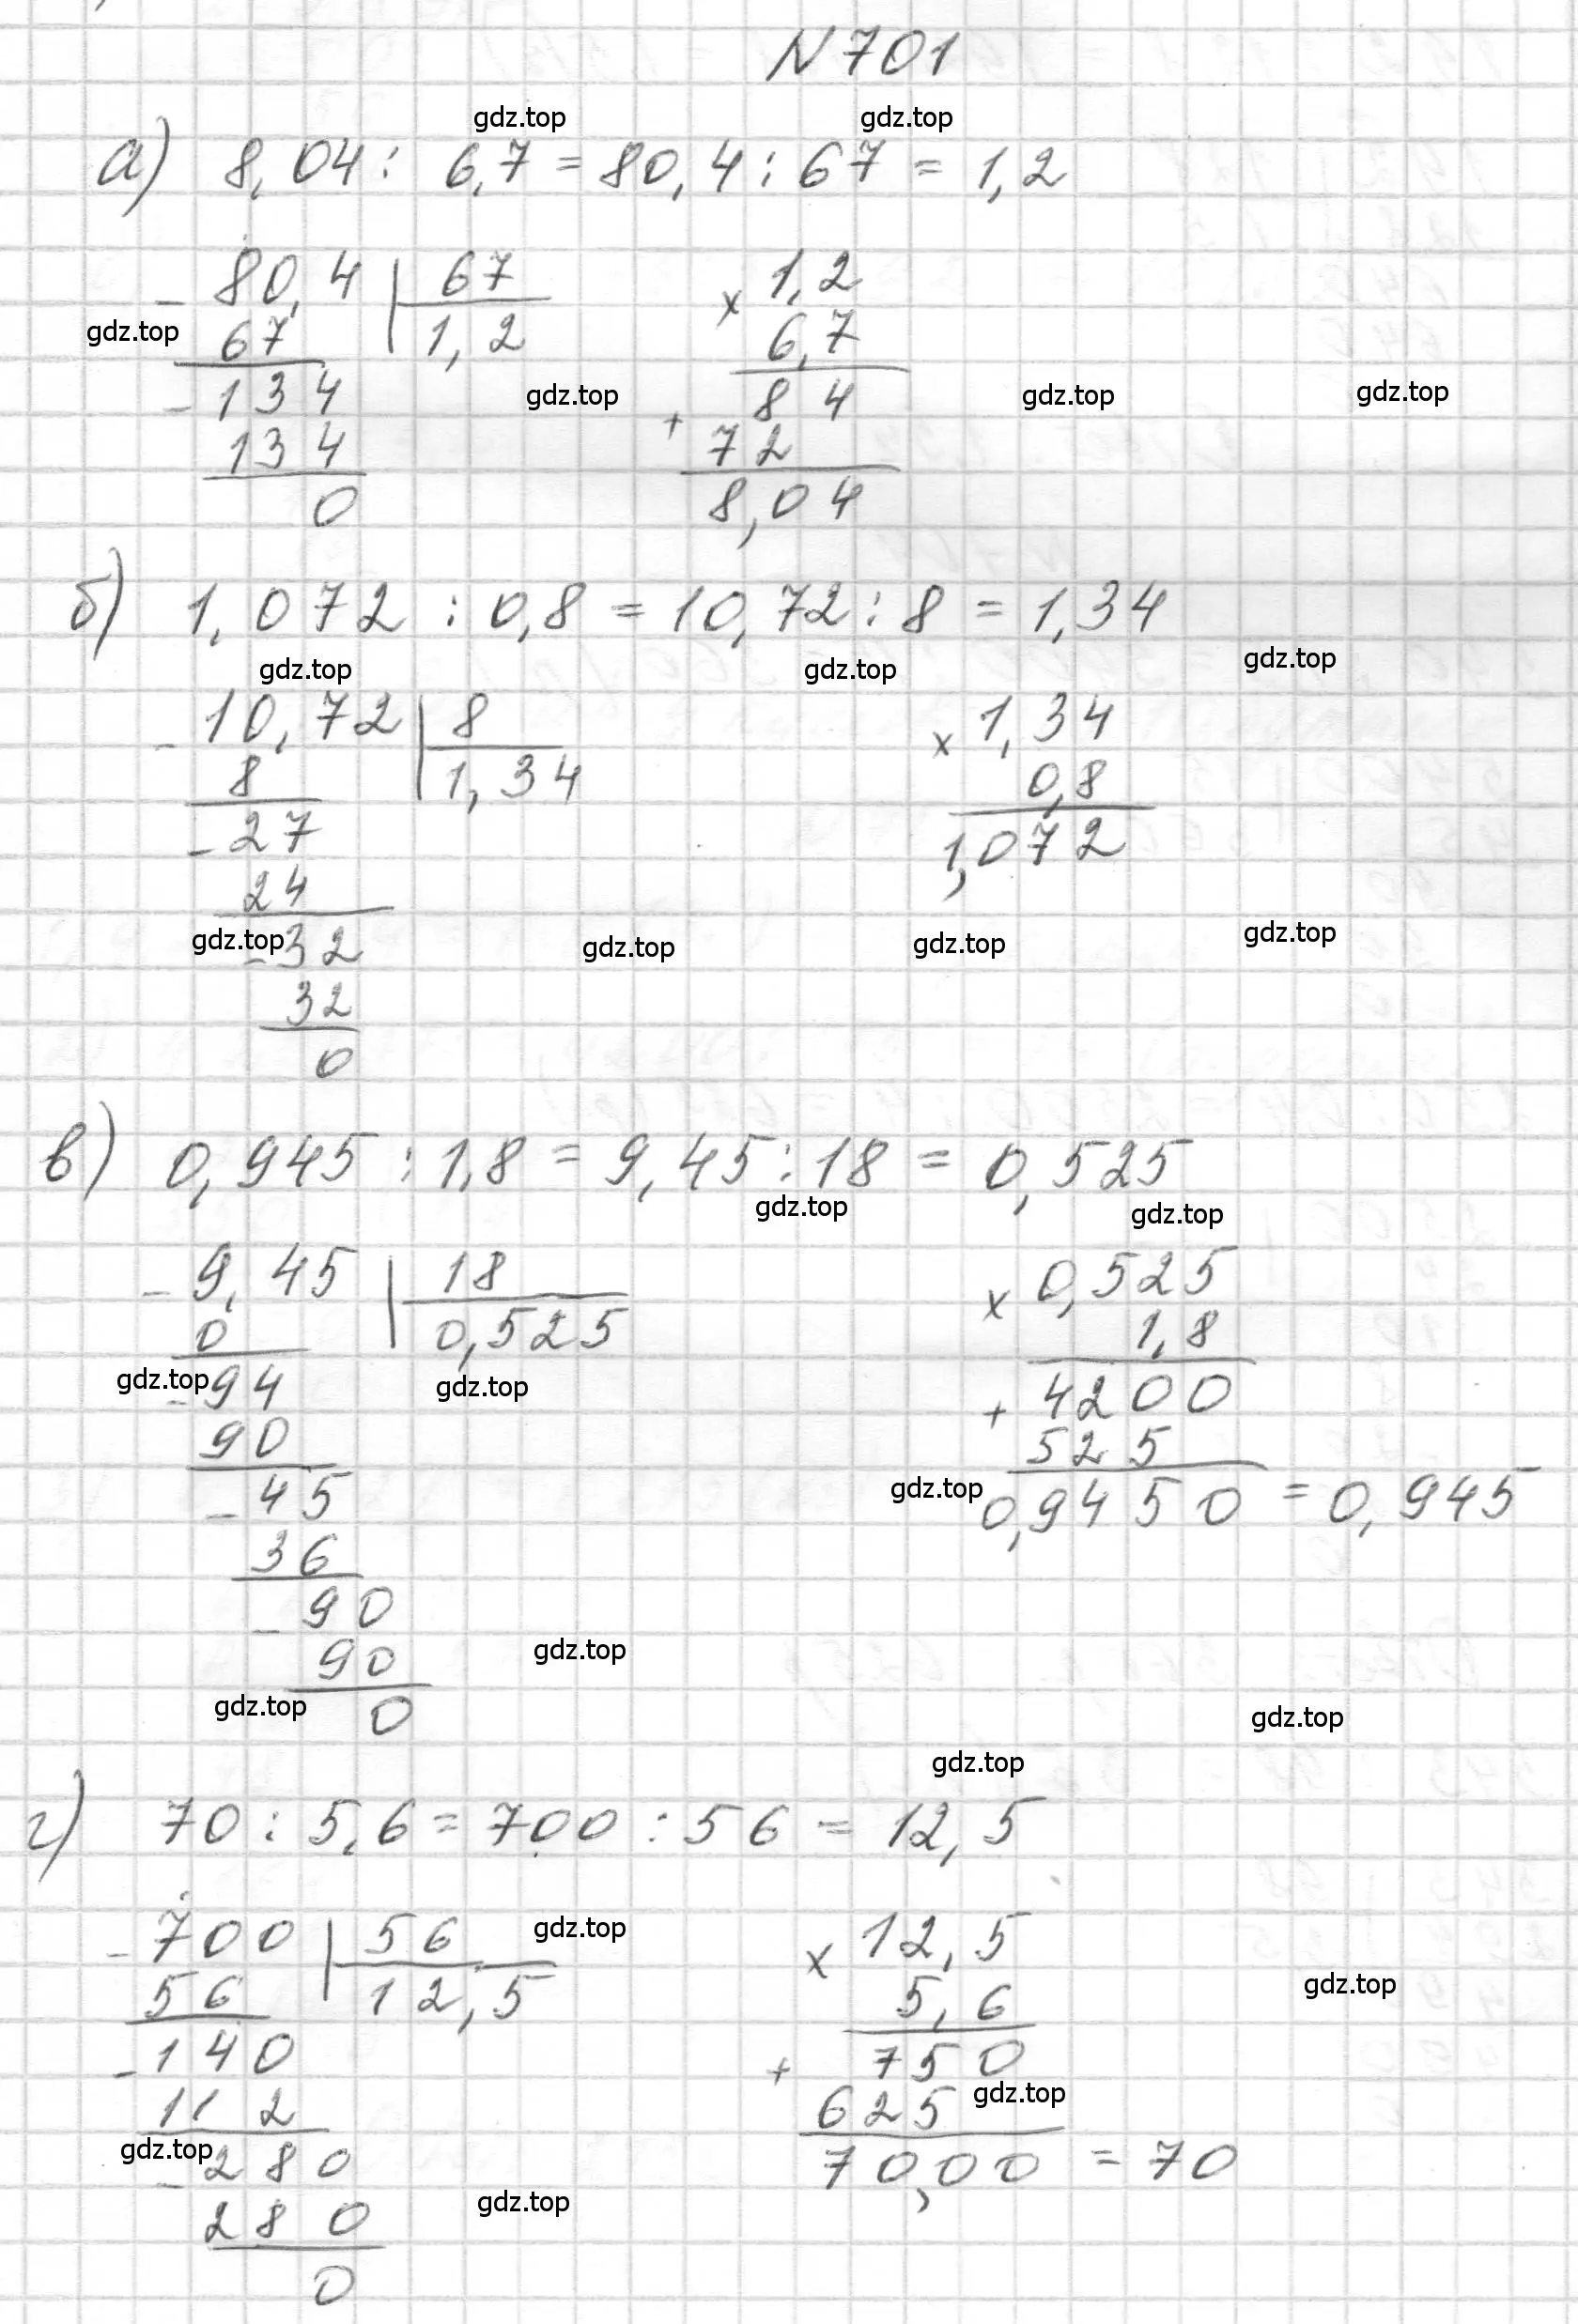 N 701
gdz.top gdz.top
а) 8,04 : 6,7 = 80,4 : 67 = 1,2
- 80,4 | 67 × 1,2
gdz.top 67 1,2 6,7
- 134 gdz.top 84 gdz.top gdz.top
134 + 72
0 8,04
б) 1,072 : 0,8 = 10,72 : 8 = 1,34
gdz.top gdz.top gdz.top
- 10,72 | 8 × 1,34
8 1,34 0,8
- 27 1,072
24
gdz.top - 32 gdz.top gdz.top gdz.top
32
0
в) 0,945 : 1,8 = 9,45 : 18 = 0,525
gdz.top gdz.top
- 9,45 | 18 × 0,525
0 0,525 1,8
gdz.top - 94 gdz.top + 4200
90 525
- 45 gdz.top 0,9450 = 0,945
36
- 90
90 gdz.top
gdz.top 0 gdz.top
gdz.top
г) 70 : 5,6 = 700 : 56 = 12,5
- 700 | 56 gdz.top × 12,5
56 12,5 5,6 gdz.top
- 140 + 750
112 625 gdz.top
gdz.top - 280 70,00 = 70
280 gdz.top
0